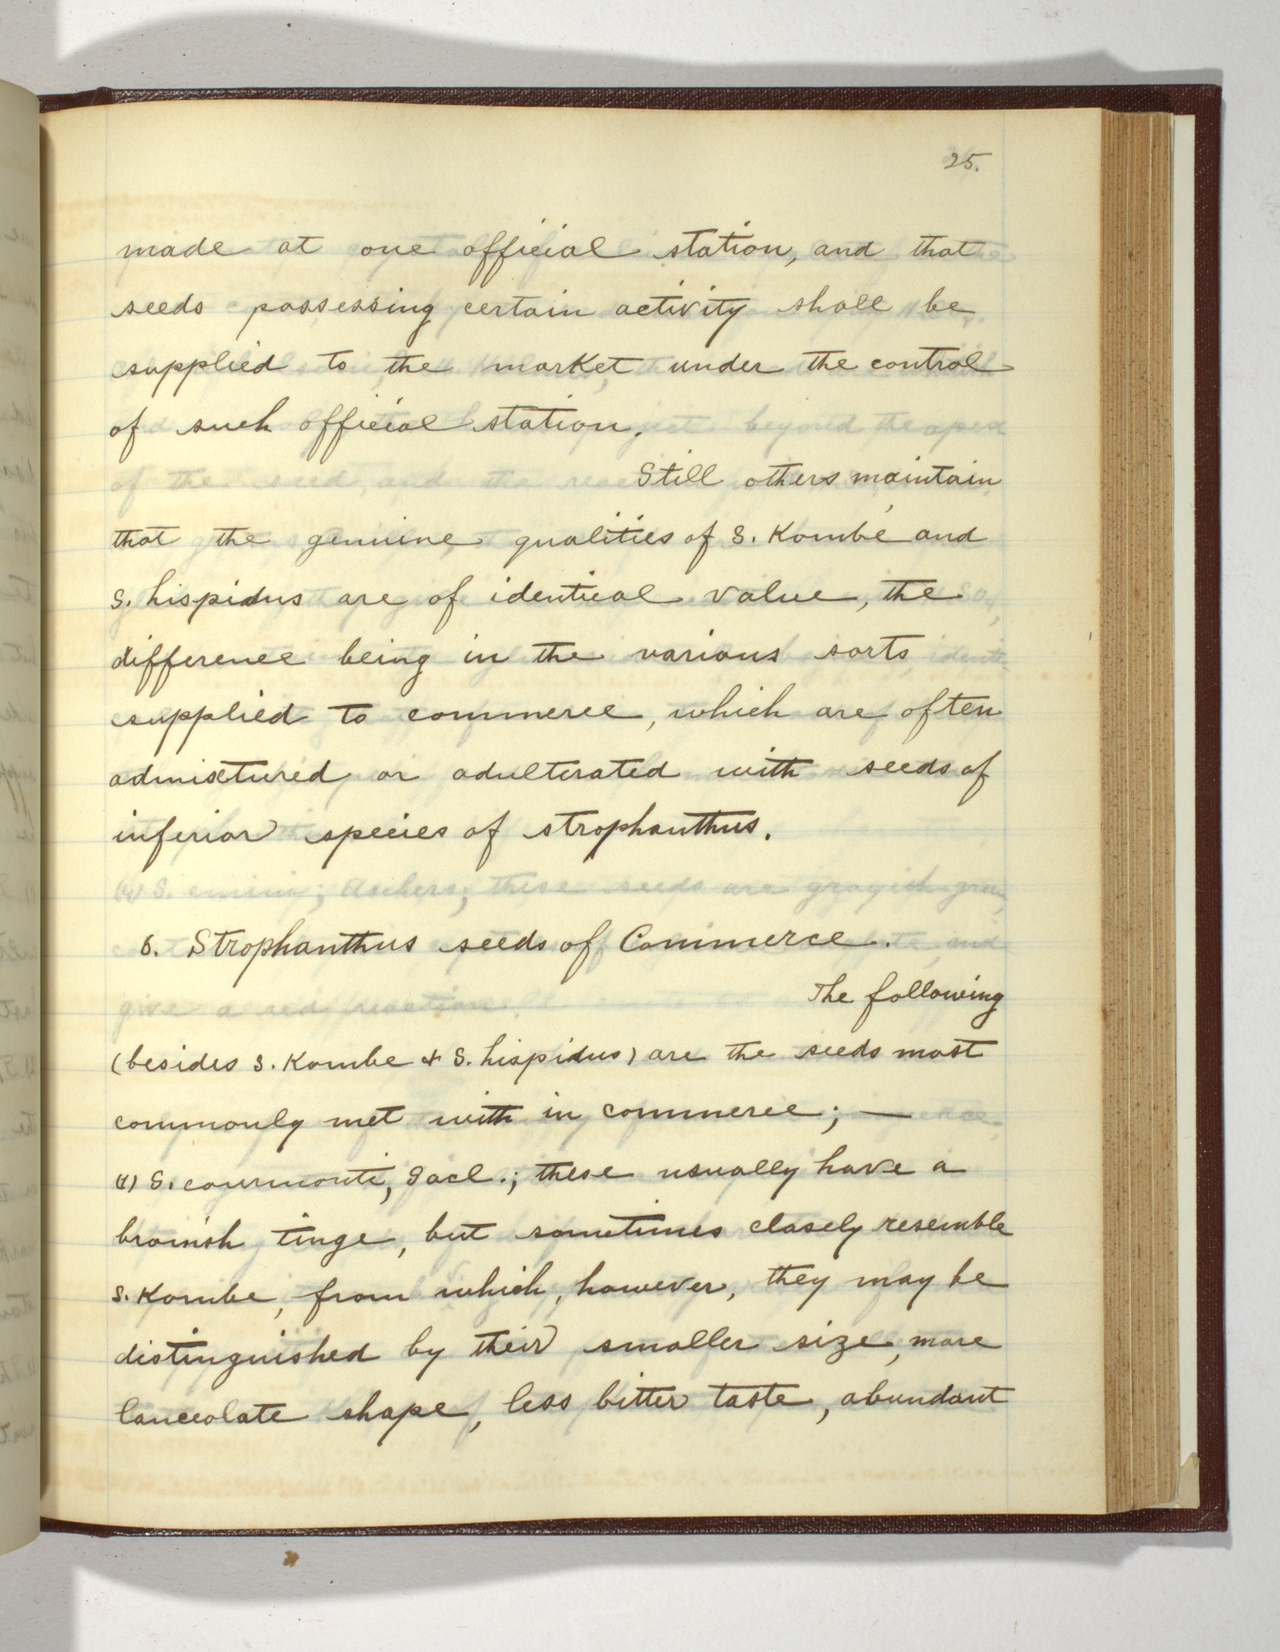 25.
made at one official station, and that
seeds possessing certain activity shall be
supplied to the market under the control
of such official station.
Still others maintain
that the genuine qualities of S. Kombé and
S. hispidus are of identical value, the
difference being in the various sorts
supplied to commerce, which are often
admixtured or adulterated with seeds of
inferior species of strophanthus.
6. Strophanthus seeds of Commerce.
The following
(besides S. Kombe & S. hispidus) are the seeds most
commonly met with in commerce; —
S. courmonti, Sacl.; these usually have a
brownish tinge, but sometimes closely resemble
S. Kombe, from which, however, they may be
distinguished by their smaller size, more
lanceolate shape, less bitter taste, abundant